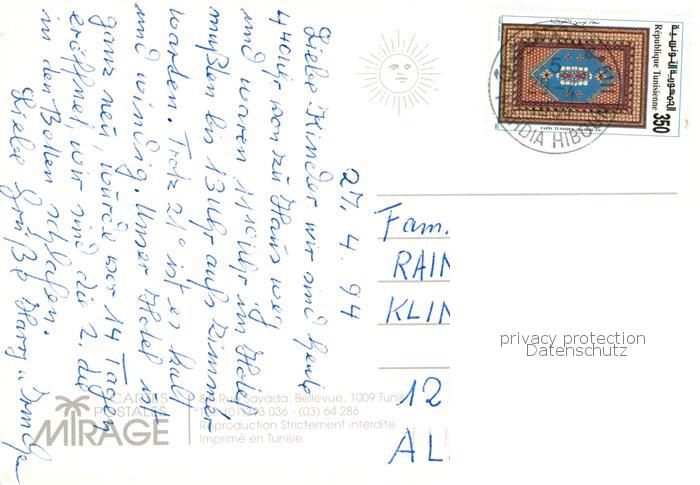 27. 4. 94
Liebe Kinder wir sind heute
4 40 Uhr von zu Haus weg
und waren 11 10 Uhr im Hotel
mußten bis 13 Uhr aufs Zimmer
warten. Trotz 21° ist es kalt
und windig. Unser Hotel ist
ganz neu, wurde vor 14 Tagen
eröffnet wir sind die 2. die
in den Betten schlafen.
Liebe Grüße Harry u.
سجاد تونسي
الجمهورية التونسية
République Tunisienne
350
TAPIS TUNISIEN
SIDIA HIBOUN
Fam.
RAIN
KLIN
12
AL
privacy protection
Datenschutz
CARTES
POSTALES
MIRAGE
Rue Sayada, Bellevue, 1009 Tunis
(01) 036 - (03) 64 286
Reproduction Strictement interdite
Imprimé en Tunisie